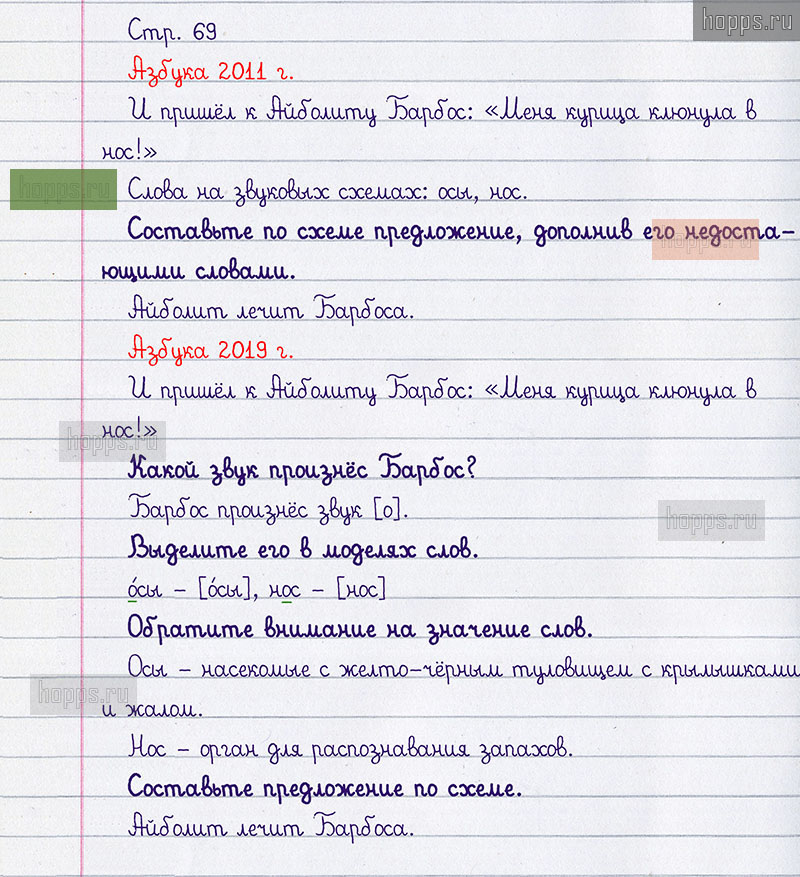 hopps.ru
Стр. 69
Азбука 2011 г.
И пришёл к Айболиту Барбос: «Меня курица клюнула в
нос!»
hopps.ru
Слова на звуковых схемах: осы, нос.
Составьте по схеме предложение, дополнив его недоста-
hopps.ru
ющими словами.
Айболит лечит Барбоса.
Азбука 2019 г.
И пришёл к Айболиту Барбос: «Меня курица клюнула в
нос!»
hopps.ru
Какой звук произнёс Барбос?
Барбос произнёс звук [о].
hopps.ru
Выделите его в моделях слов.
о́сы – [о́сы], нос – [нос]
Обратите внимание на значение слов.
Осы – насекомые с желто-чёрным туловищем с крылышками
hopps.ru
и жалом.
Нос – орган для распознавания запахов.
Составьте предложение по схеме.
Айболит лечит Барбоса.